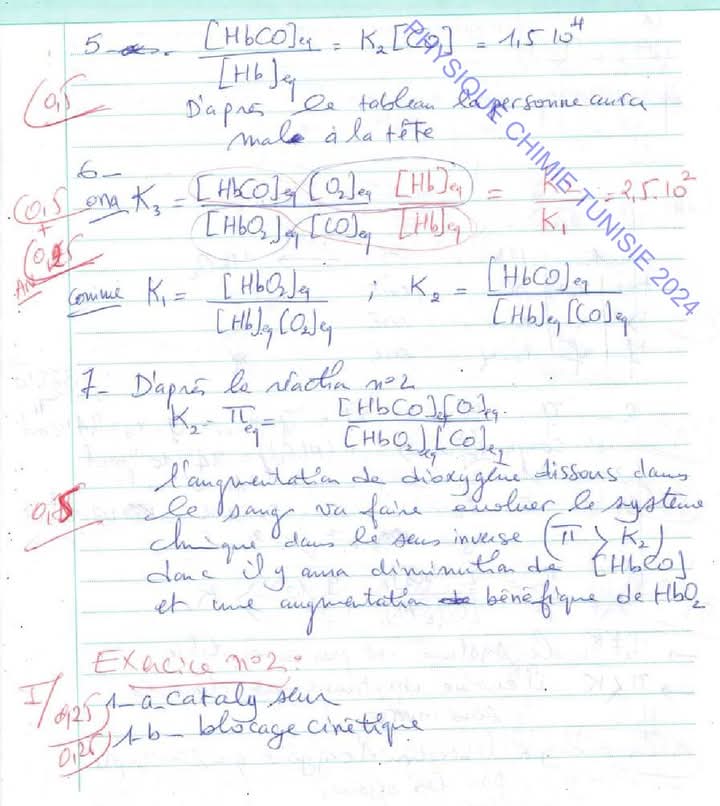 5- [HbCO]eq / [Hb]eq = K2 [CO] = 1,5 10^4
0,5
D'après le tableau la personne aura
male à la tête
6-
0,5 + 0,25
AN
ona K3 = [HbCO]eq [O2]eq [Hb]eq / [HbO2]eq [CO]eq [Hb]eq = K2 / K1 = 2,5.10^2
comme K1 = [HbO2]eq / [Hb]eq [O2]eq ; K2 = [HbCO]eq / [Hb]eq [CO]eq
7- D'après la réaction n°2
K2 = πeq = [HbCO]eq [O]eq / [HbO2]eq [CO]eq
l'augmentation de dioxygène dissous dans
le sang va faire évoluer le système
chimique dans le sens inverse (π > K2)
donc il y aura diminution de [HbCO]
et une augmentation bénéfique de HbO2
Exercice n°2:
I/ 0,25 1-a- catalyseur
0,25 1-b- blocage cinétique
PHYSIQUE CHIMIE TUNISIE 2024